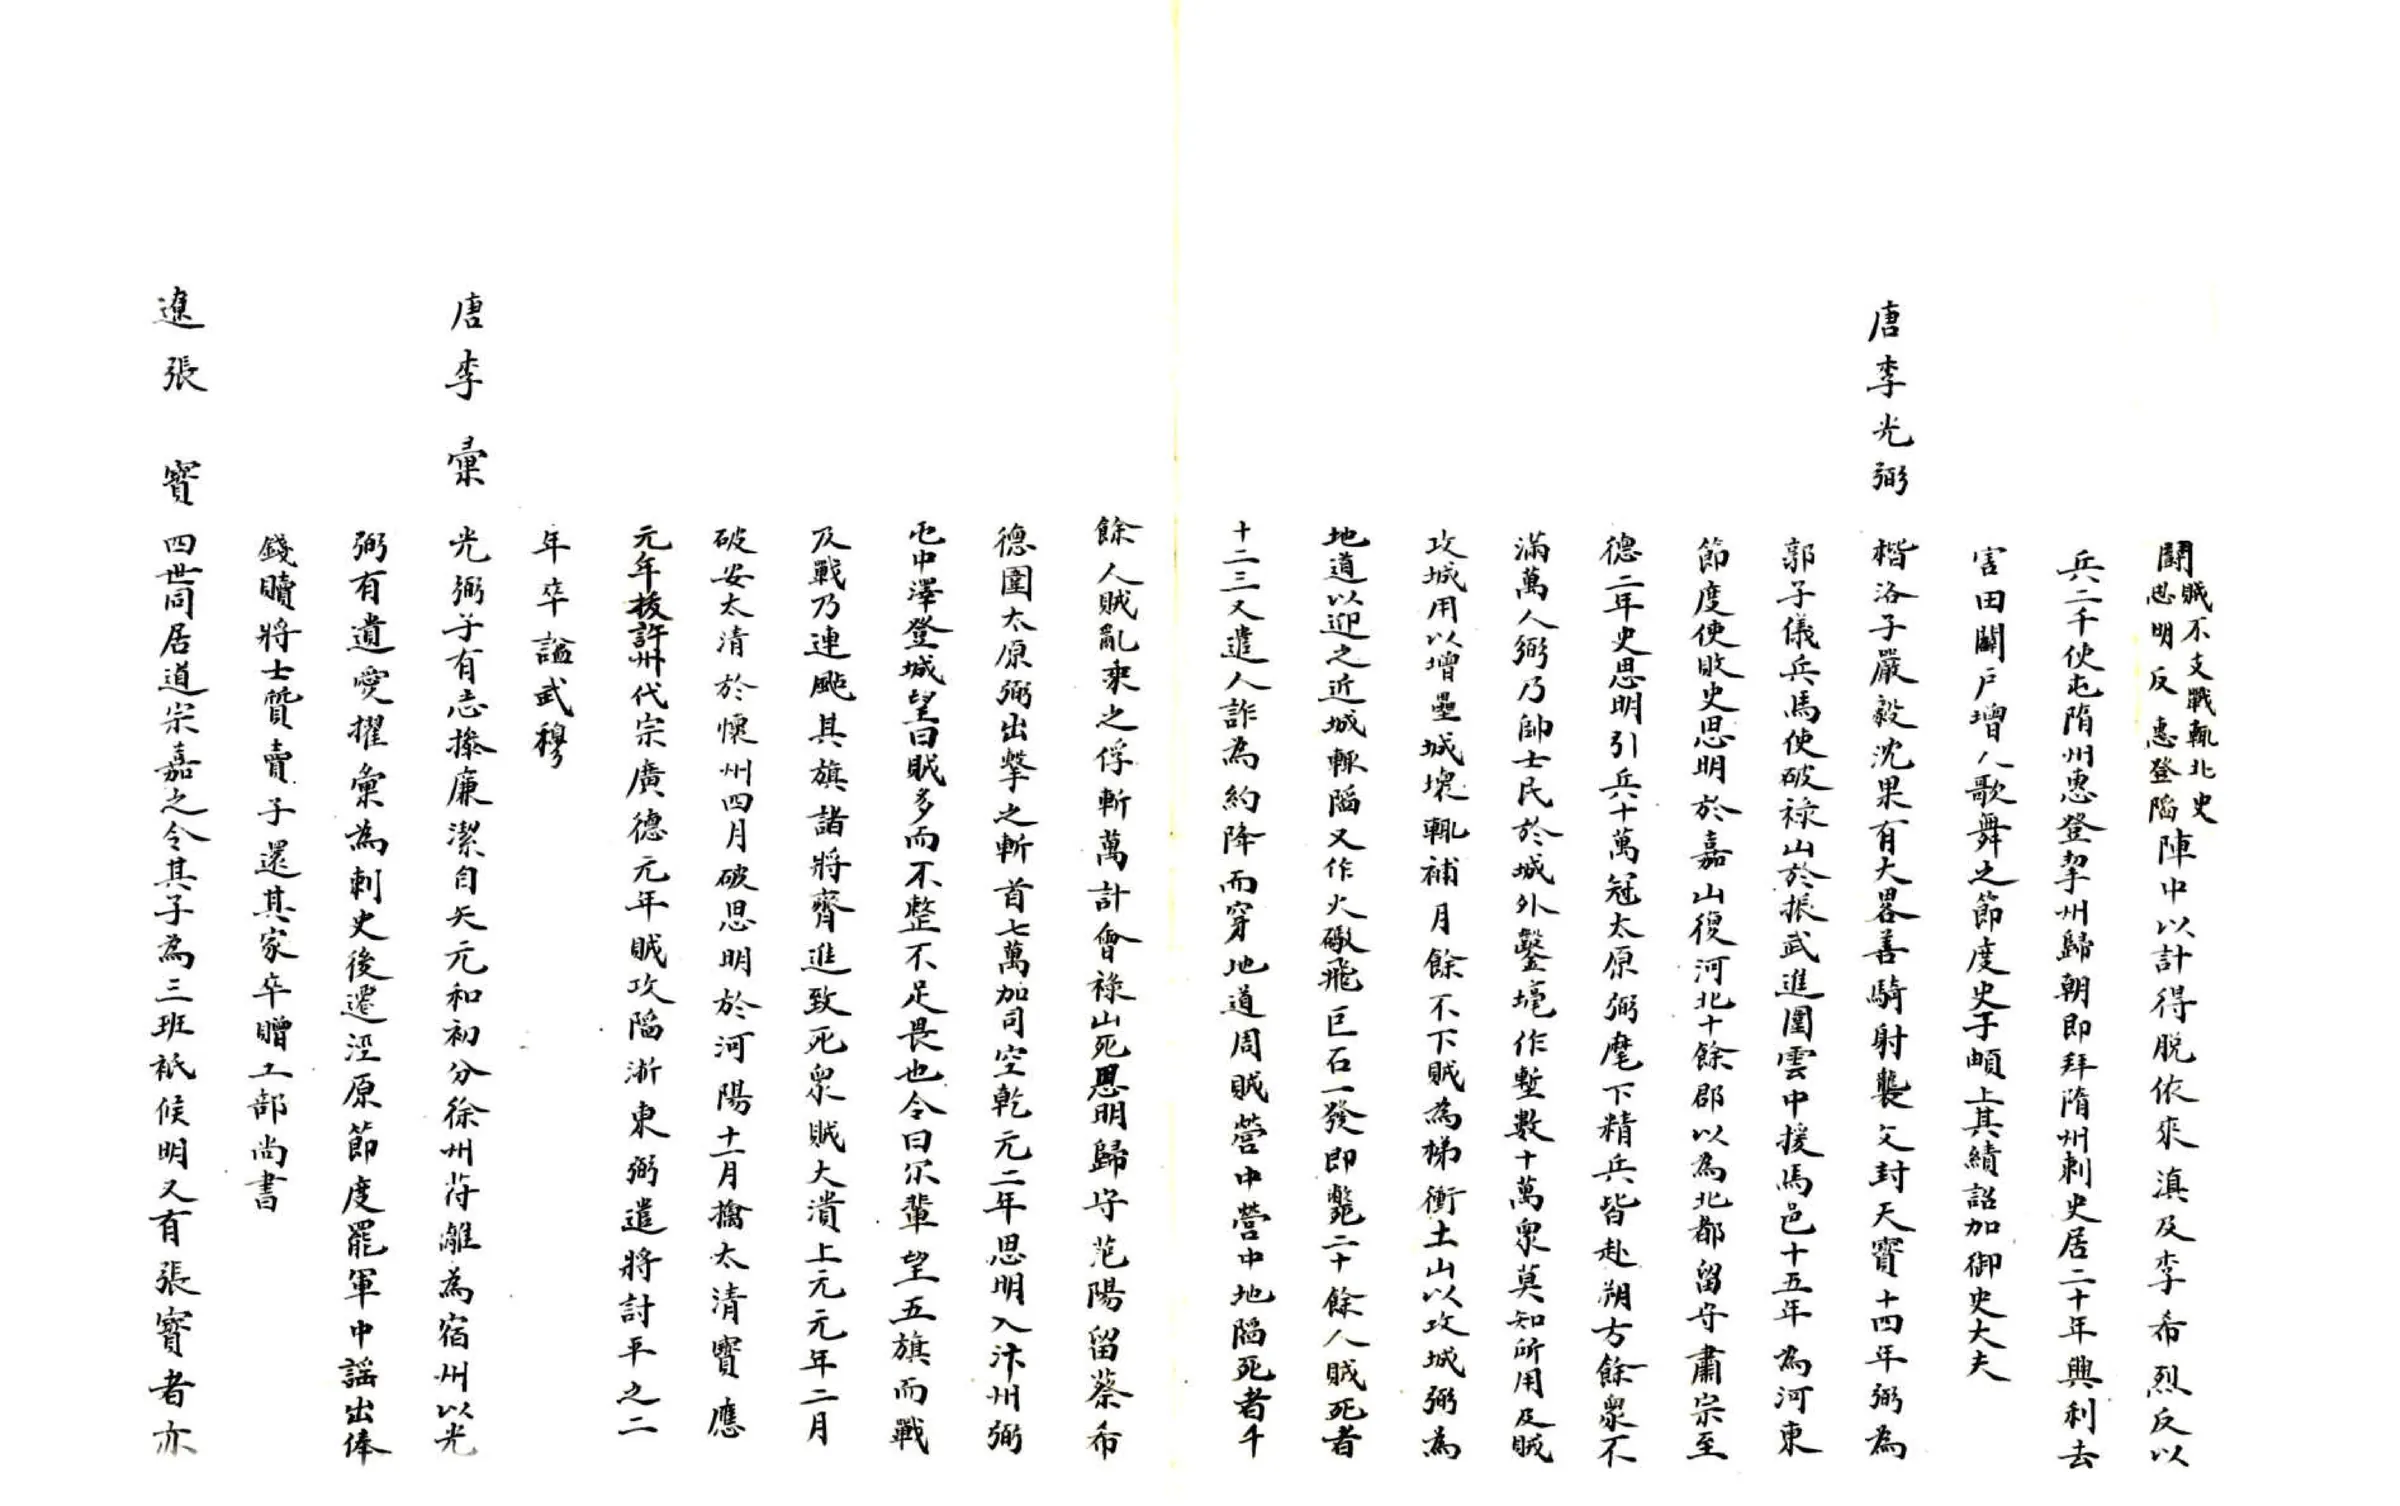 鬭賊不支戰輒北史思明反惠登陷陣中以計得脱依來滇及李希烈反以
兵二千使屯隋州惠登挈州歸朝即拜隋州刺史居二十年興利去
害田闢戶增人歌舞之節度史于頔上其績詔加御史大夫
唐李光弼 楷洛子嚴毅沈果有大畧善騎射襲父封天寶十四年弼為
郭子儀兵馬使破祿山於振武進圍雲中援馬邑十五年為河東
節度使敗史思明於嘉山復河北十餘郡以為北都留守肅宗至
德二年史思明引兵十萬冦太原弼麾下精兵皆赴朔方餘衆不
滿萬人弼乃帥士民於城外鑿壕作塹數十萬衆莫知所用及賊
攻城用以增壘城壞輒補月餘不下賊為梯衝土山以攻城弼為
地道以迎之近城輒陷又作火礮飛巨石一發即斃二十餘人賊死者
十二三又遣人詐為約降而穿地道周賊營中營中地陷死者千
餘人賊亂乘之俘斬萬計會祿山死思明歸守范陽留蔡希
德圍太原弼出擊之斬首七萬加司空乾元二年思明入汴州弼
屯中潬登城望曰賊多而不整不足畏也令曰尔輩望五旗而戰
及戰乃連颭其旗諸將齊進致死衆賊大潰上元元年二月
破安太清於懷州四月破思明於河陽十一月擒太清寶應
元年拔許州代宗廣德元年賊攻陷浙東弼遣將討平之二
年卒謚武穆
唐李彙 光弼子有志操廉潔自矢元和初分徐州苻離為宿州以光
弼有遺愛擢彙為刺史後遷涇原節度罷軍中謡出俸
錢贖將士質賣子還其家卒贈工部尚書
遼張寶 四世同居道宗嘉之令其子為三班祇候明又有張寶者亦